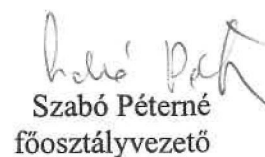 Szabó Péterné
főosztályvezető